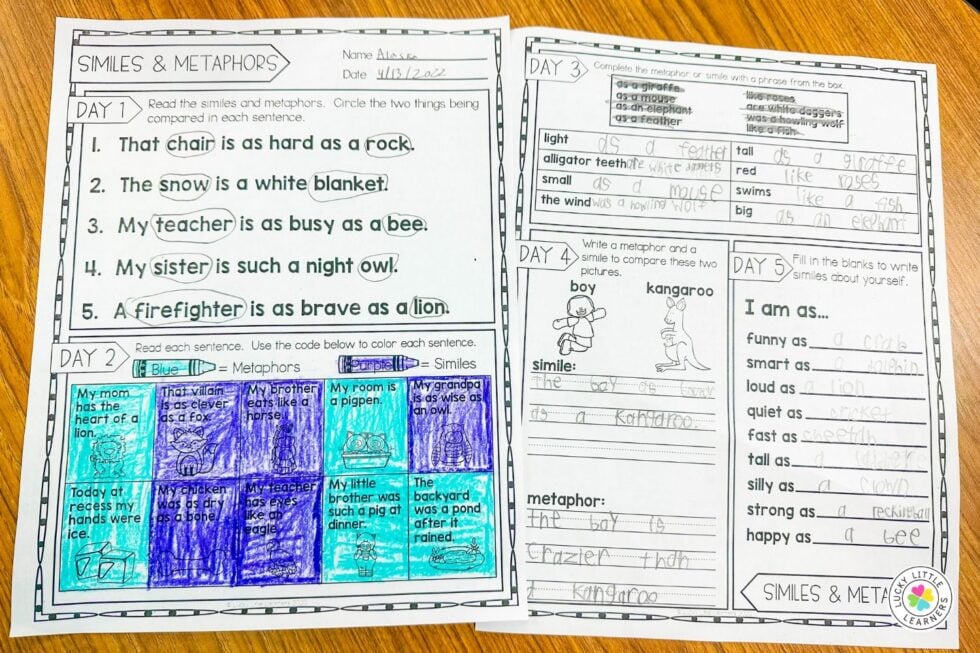 SIMILES & METAPHORS
Name Alaska
Date 4/13/2022
DAY 1
Read the similes and metaphors. Circle the two things being
compared in each sentence.
1. That chair is as hard as a rock.
2. The snow is a white blanket.
3. My teacher is as busy as a bee.
4. My sister is such a night owl.
5. A firefighter is as brave as a lion.
DAY 2
Read each sentence. Use the code below to color each sentence.
Blue = Metaphors
Purple = Similes
My mom
has the
heart of a
lion.
That villain
is as clever
as a fox.
My brother
eats like a
horse.
My room is
a pigpen.
My grandpa
is as wise as
an owl.
Today at
recess my
hands were
ice.
My chicken
was as dry
as a bone.
My teacher
has eyes
like an
eagle.
My little
brother was
such a pig at
dinner.
The
backyard
was a pond
after it
rained.
DAY 3
Complete the metaphor or simile with a phrase from the box.
as a giraffe
as a mouse
as an elephant
as a feather
like roses
are white daggers
was a howling wolf
like a fish
light as a feather
alligator teeth are white
small as a mouse
the wind was a howling wolf
tall as a giraffe
red like roses
swims like a fish
big as an elephant
DAY 4
Write a metaphor and a
simile to compare these two
pictures.
boy
kangaroo
simile:
the boy as
as a kangaroo.
metaphor:
the boy is
Crazier than
a kangaroo
DAY 5
Fill in the blanks to write
similes about yourself.
I am as...
funny as a crab
smart as dolphin
loud as a lion
quiet as cricket
fast as cheetah
tall as a giraffe
silly as a clown
strong as a reckingball
happy as a bee
SIMILES & META
LUCKY LITTLE
LEARNERS